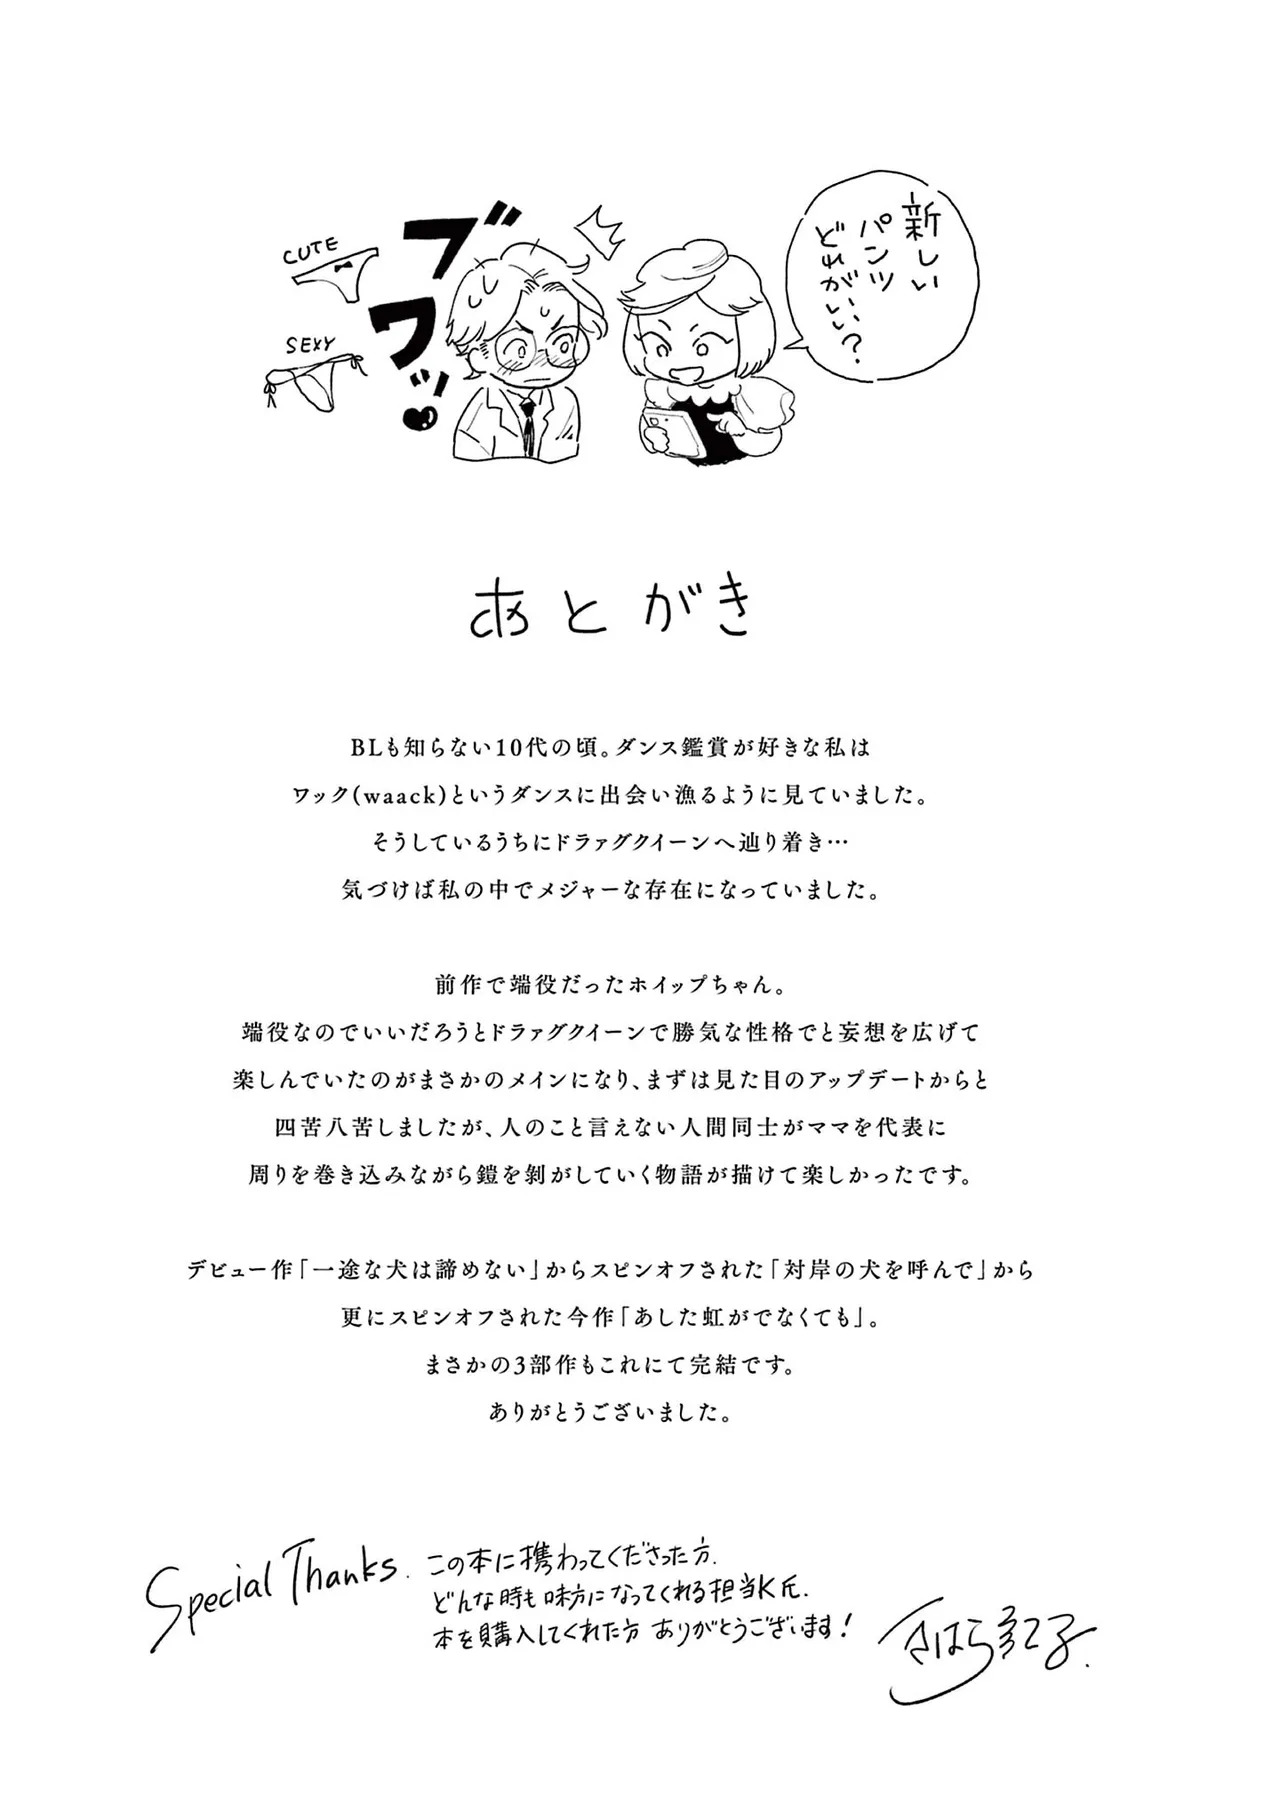 新しい
パンツ
どれがいい?
CUTE
SEXY
ブワッ
あとがき
BLも知らない10代の頃。ダンス鑑賞が好きな私は
ワック(waack)というダンスに出会い漁るように見ていました。
そうしているうちにドラァグクイーンへ辿り着き…
気づけば私の中でメジャーな存在になっていました。
前作で端役だったホイップちゃん。
端役なのでいいだろうとドラァグクイーンで勝気な性格でと妄想を広げて
楽しんでいたのがまさかのメインになり、まずは見た目のアップデートからと
四苦八苦しましたが、人のこと言えない人間同士がママを代表に
周りを巻き込みながら鎧を剥がしていく物語が描けて楽しかったです。
デビュー作「一途な犬は諦めない」からスピンオフされた「対岸の犬を呼んで」から
更にスピンオフされた今作「あした虹がでなくても」。
まさかの3部作もこれにて完結です。
ありがとうございました。
Special Thanks.
この本に携わってくださった方.
どんな時も味方になってくれる担当K氏.
本を購入してくれた方 ありがとうございます!